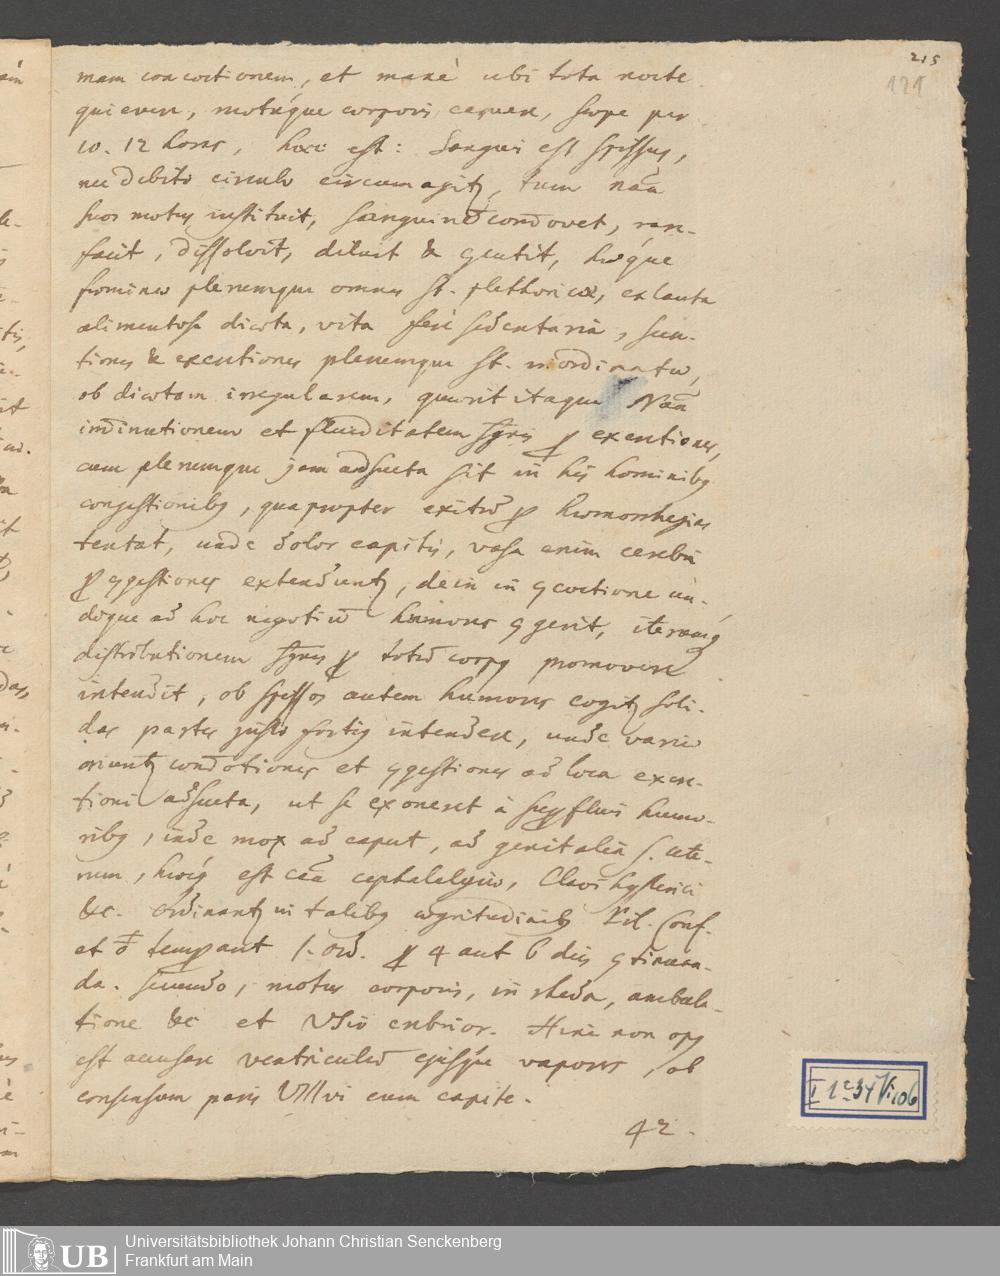 215
121
mam concoctionem, et manè ubi tota nocte
quievere, motúque corporis caruere, sæpe per
10. 12 horas, hæc est: Sanguis est spissus,
nec debito circulo circumagitꝫ, tum naā
suos motus instituit, sanguinē com̄ovet, rare-
facit, dissolvit, diluit &
fœminæ plerumque omnes st. plethoricæ, ex lauta
alimentosa diæta, vita ferè sedentaria,
tiones & excretiones plerumque st. inordinatæ,
ob diætam irregularem, quærit itaque Naā
im̄inutionem et fluiditatem sgnis ꝑ excretiones,
cum plerumque jam adsueta sit in his hominibꝫ
congestionibꝫ, quapropter exitū ꝑ hæmorrhagias
tentat, unde dolor capitis, vasa enim cerebri
ꝑ ꝯgestiones extenduntꝫ, dein in ꝯcoctione un-
dique ad hoc negotiū humores ꝯgerit,
distributionem sgnis ꝑ totū corpꝫ promovere
intendit, ob spissos autem humores cogitꝫ soli-
das partes justo fortiꝫ intendere, unde variæ
oriuntꝫ com̄otiones et ꝯgestiones ad loca excre-
tioni adsueta, ut se exoneret à suꝑfluis humo-
ribꝫ, inde mox ad caput, ad genitalia s. ute-
rum, est caā cephalalgiæ, Clavi hysterici
&c. Ordinantꝫ in talibꝫ ægritudinibꝫ Pil. Conf.
et temꝑant s. ꝑ 4 aut 6 dies ꝯtinuan-
da. secundo, motus corporis, in rheda, ambula-
tione &c et VSio crebrior. Hinc non opꝫ
est accusare ventriculū ejusque vapores, ob
consensum paris VIII vi cum capite.
42.
Universitätsbibliothek Johann Christian Senckenberg
Frankfurt am Main
UB